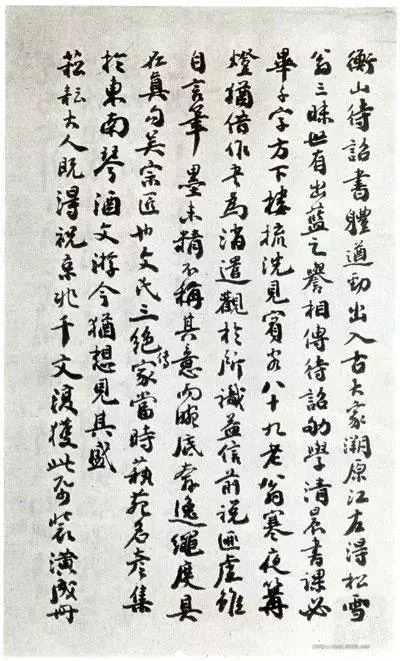 衡山待詔書體遒勁出入古大家溯原江左得松雪
翁三昧世有出藍之譽相傳待詔劬學清晨書課必
畢千字方下樓梳洗見賓客八十九老翁寒夜篝
燈猶借作書為消遣觀於所識益信前說匪虛雖
自言筆墨未精不稱其意而腕底奇逸繩度具
在真句吳宗匠也文氏三絕傳家當時藝苑名彥集
於東南琴酒文游今猶想見其盛
菘耘大人既得祝京兆千文復獲此爰裝潢成冊